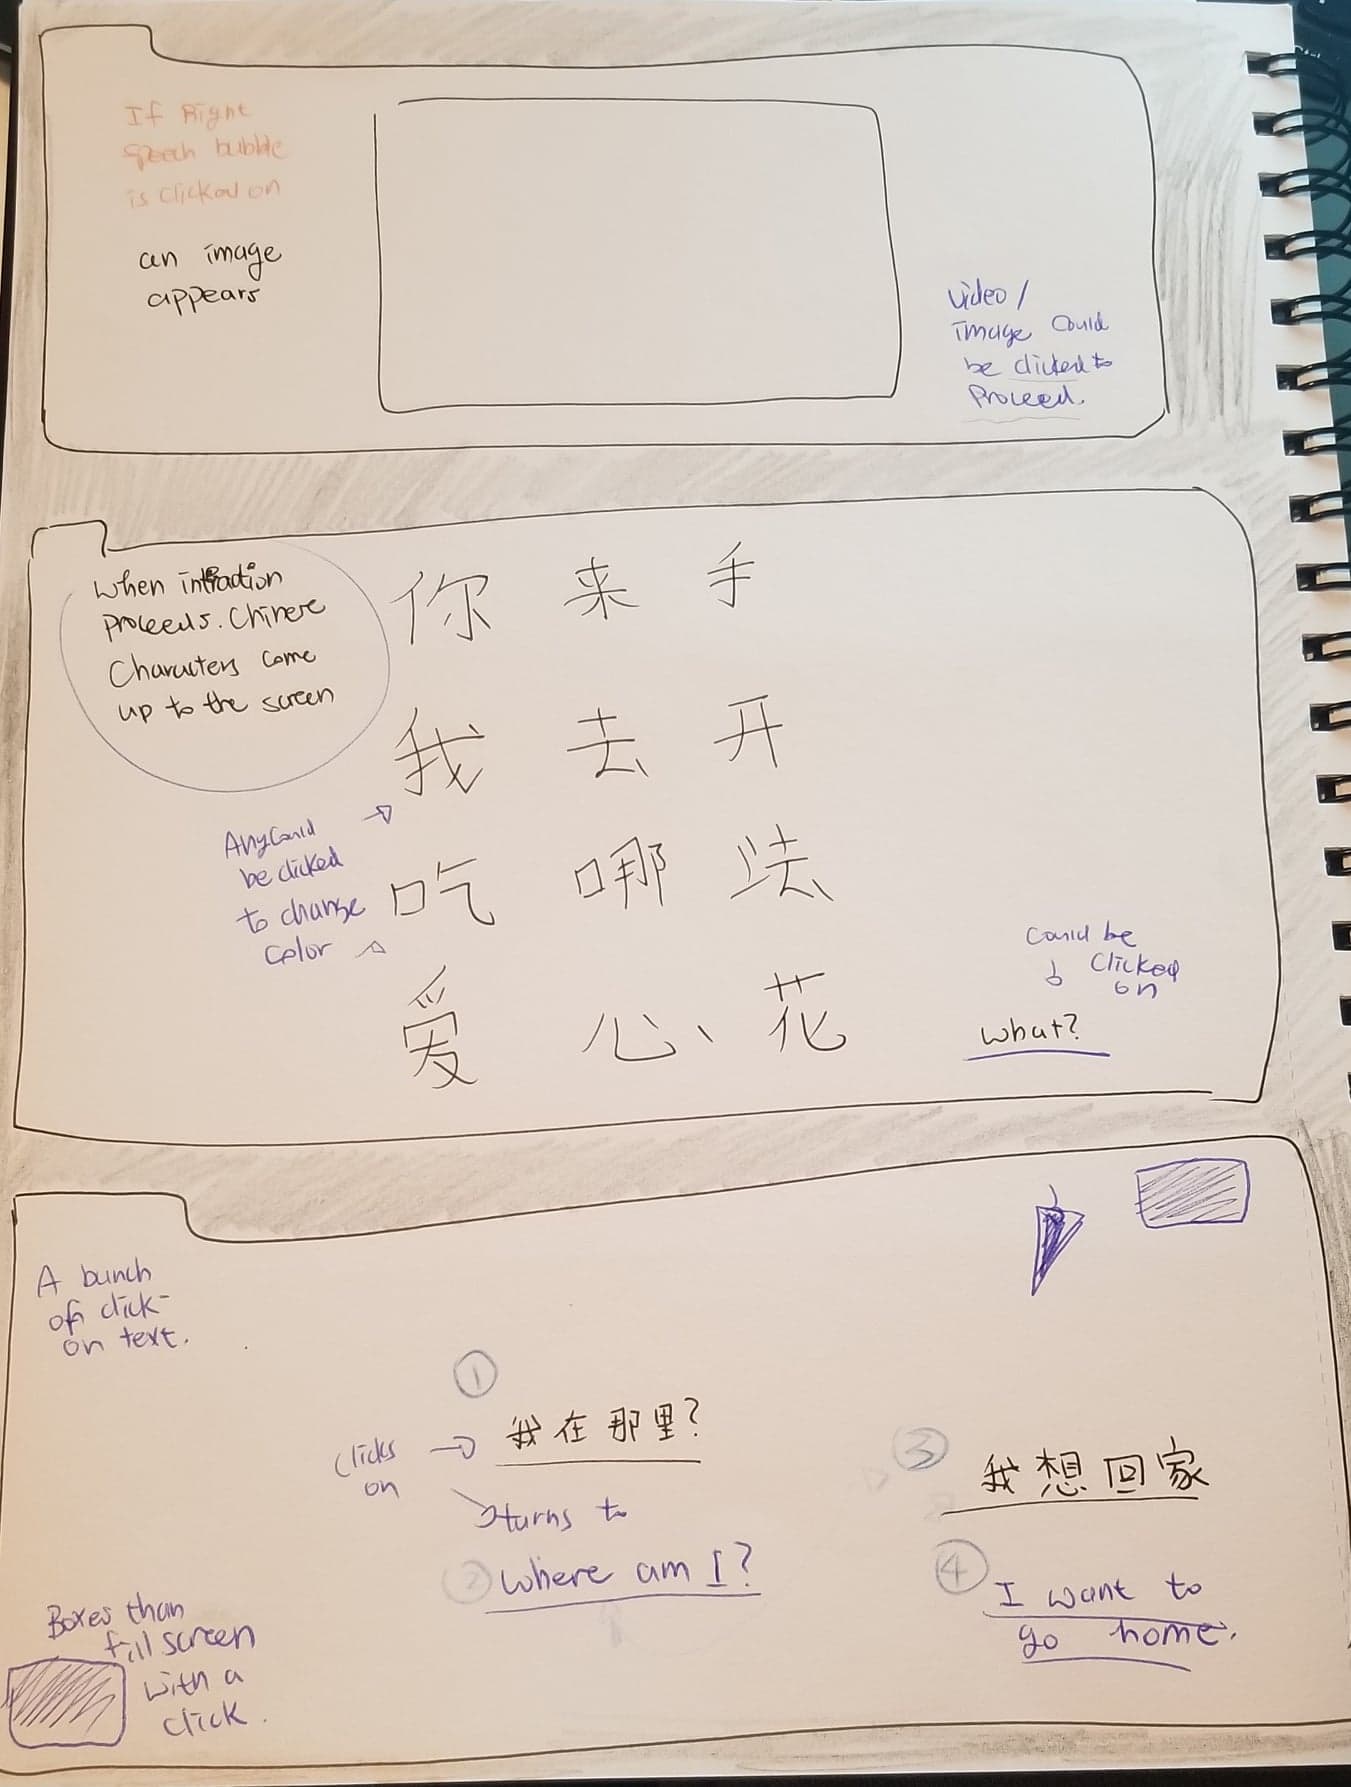 If Right
speech bubble
is clicked on
an image
appears
video/
image could
be clicked to
proceed.
When
proceeds. Chinese
Characters come
up to the screen
你 来 手
我 去 开
吃 哪 法
爱 心 花
Any could
be clicked
to change
color
could be
clicked
on
what?
A bunch
of click-
on text.
①
clicks
on
我在那里?
turns to
② where am I?
③
我想回家
④
I want to
go home.
Boxes than
fill screen
with a
click.